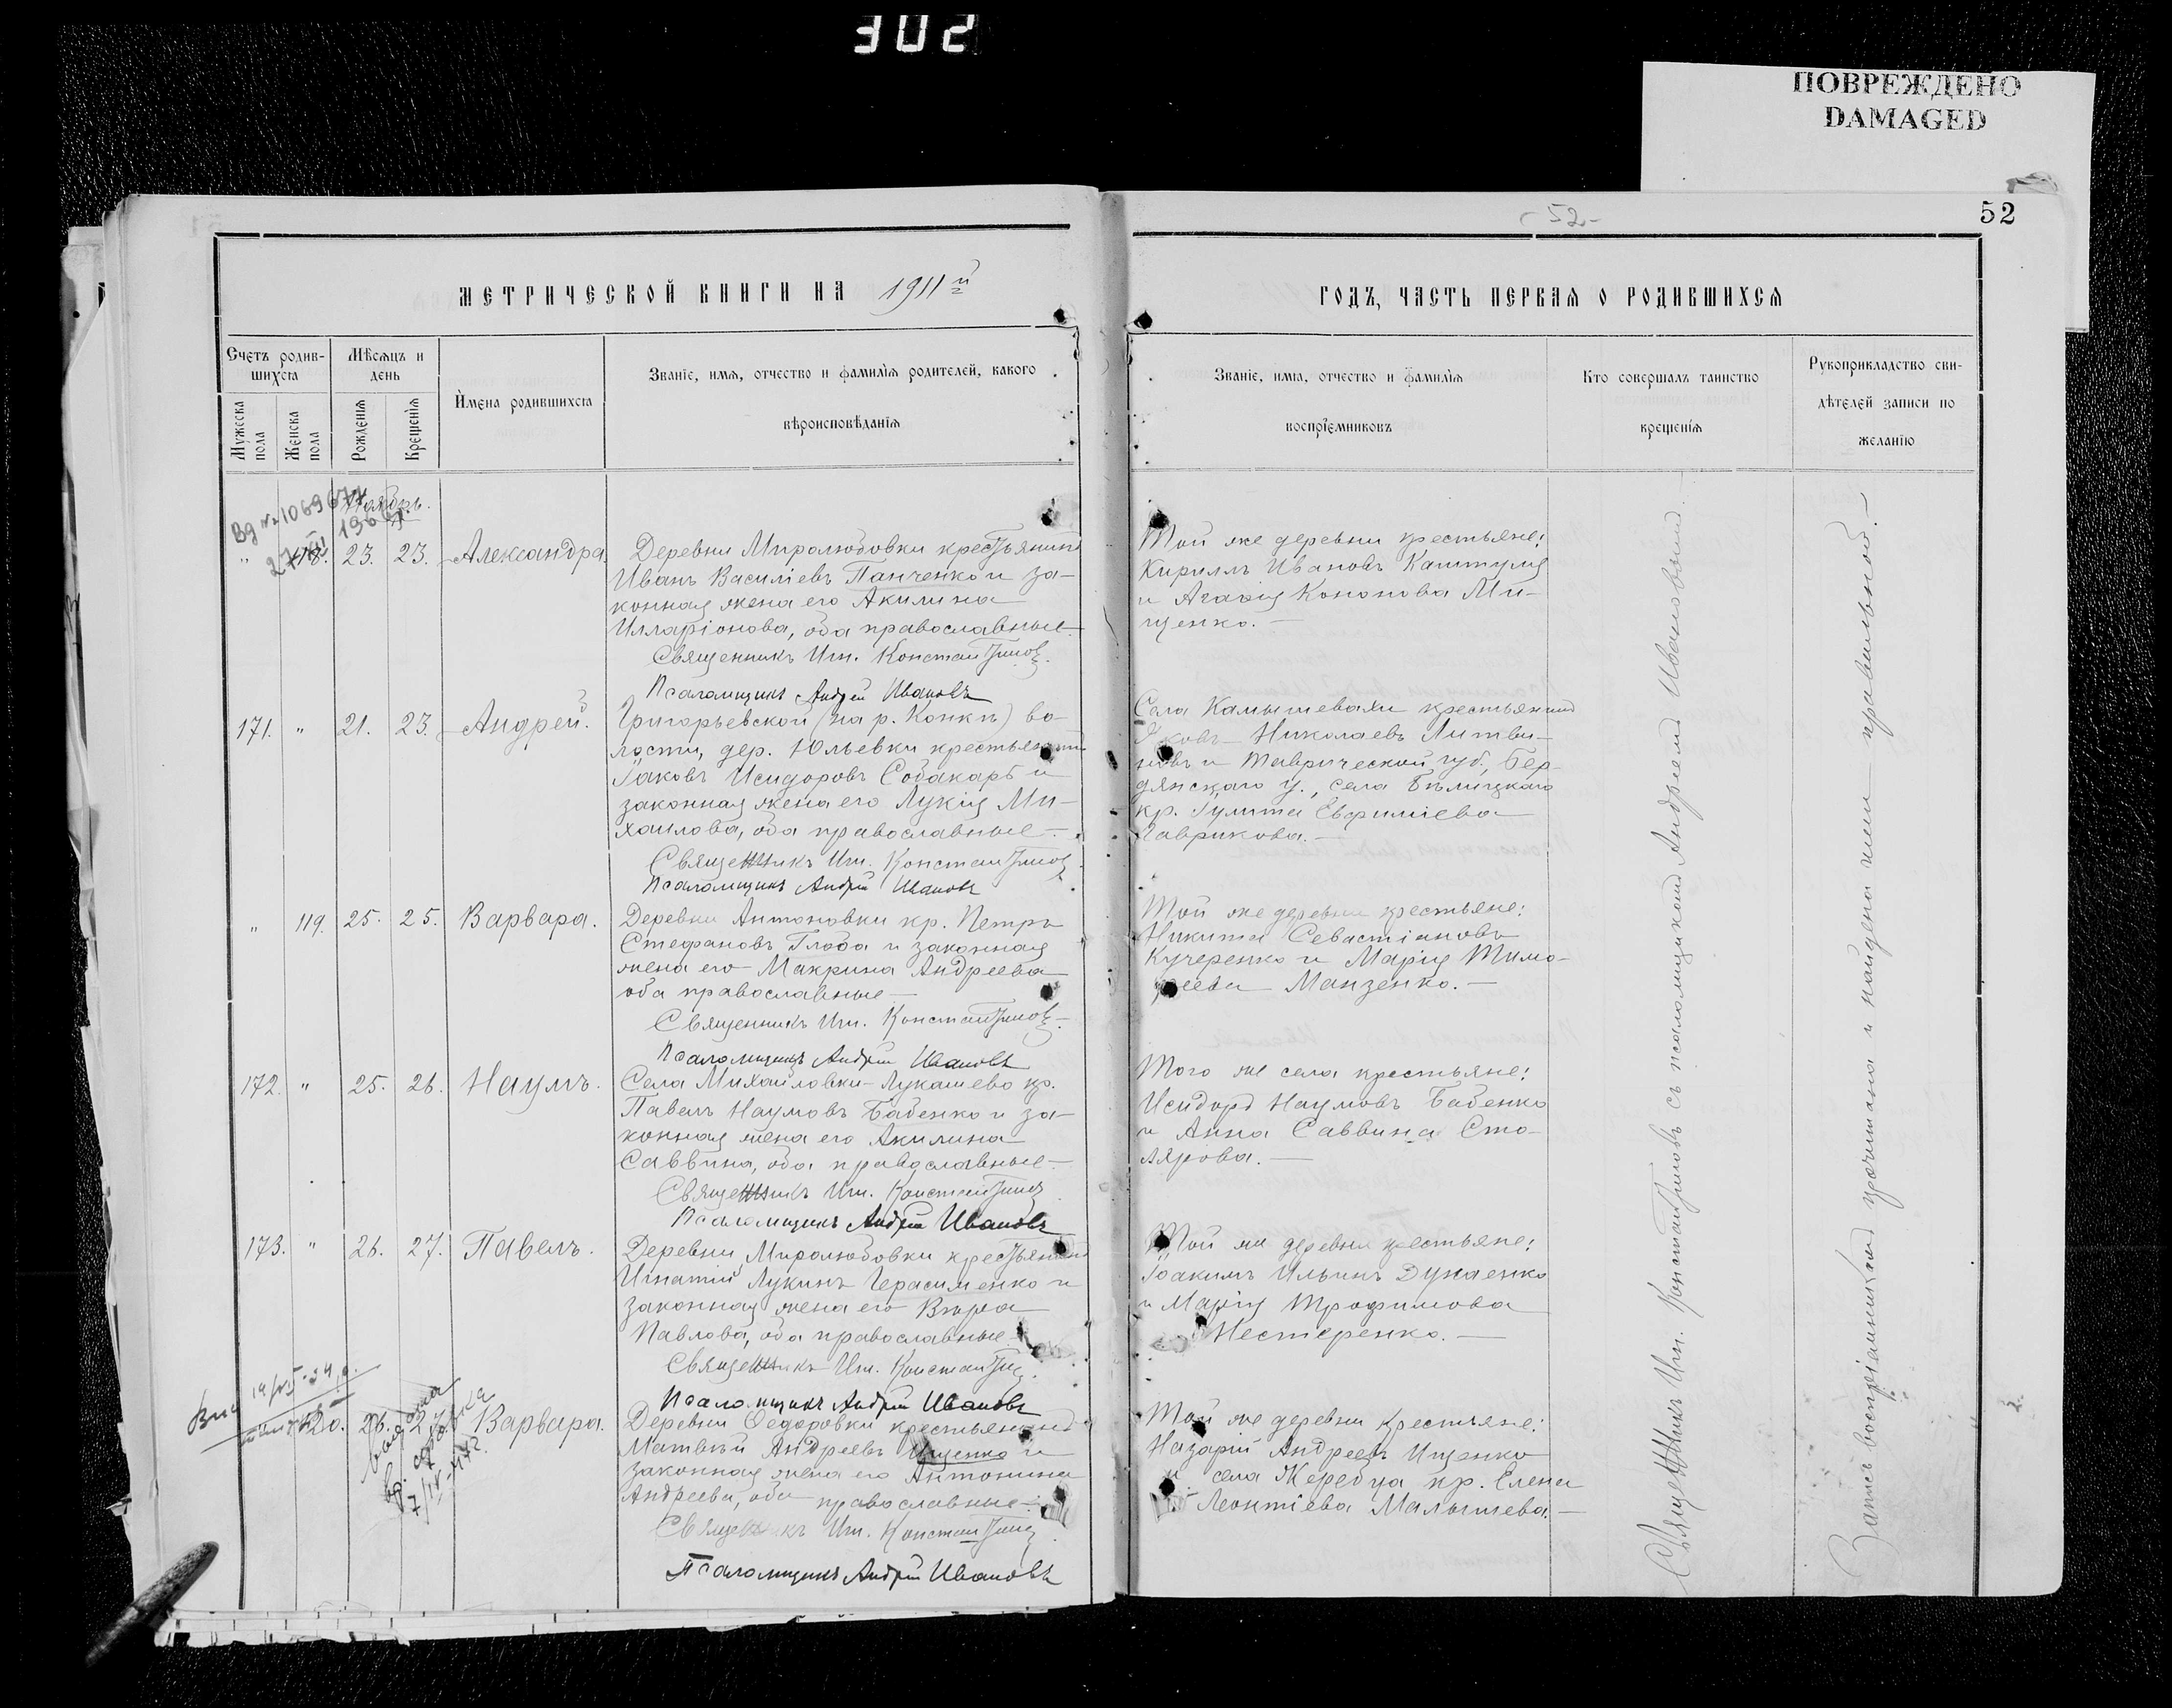 302
ПОВРЕЖДЕНО
DAMAGED
52
52
МЕТРИЧЕСКОЙ КНИГИ НА 1911й
ГОДЪ, ЧАСТЬ ПЕРВАЯ О РОДИВШИХСЯ
Счетъ родив-
шихся
Мужеска пола
Женска пола
Мѣсяцъ и
день
Рожденія
Крещенія
Имена родившихся
Званіе, имя, отчество и фамилія родителей, какого
вѣроисповѣданія
Званіе, имя, отчество и фамилія
воспріемниковъ
Кто совершалъ таинство
крещенія
Рукоприкладство сви-
дѣтелей записи по
желанію
Ноябрь.
" 118. 23. 23. Александра.
Деревни Миролюбовки крестьянинъ
Иванъ Василіевъ Панченко и за-
конная жена его Акилина
Илларіонова, оба православные
Священникъ Иг. Константинов.
Псаломщикъ Андрей Ивановъ
Той же деревни крестьяне:
Кириллъ Ивановъ
и Агафія Кононова Ми-
щенко.
171. " 21. 23. Андрей.
Григорьевской (на р. Конкѣ) во-
лости, дер. Юльевки крестьянинъ
Іаковъ Исидоровъ Собакарь и
законная жена его Лукія Ми-
хаилова, оба православные
Священникъ Иг. Константинов
Псаломщикъ Андрей Ивановъ
Села Камышевахи крестьянинъ
Яковъ Николаевъ Литви-
новъ и Таврической губ., Бер-
дянскаго у., села Бѣлицкаго
кр. Іулита Евфиміева
Гаврикова.
" 119. 25. 25. Варвара.
Деревни Антоновки кр. Петръ
Стефановъ Глоба и законная
жена его Макрина Андреева
оба православные
Священникъ Иг. Константинов.
Псаломщикъ Андрей Ивановъ
Той же деревни крестьяне:
Никита Севастіановъ
Кучеренко и Марія Тимо-
феева Манзенко.
172. " 25. 26. Наумъ.
Села Михайловки-Лукашево кр.
Павелъ Наумовъ Бабенко и за-
конная жена его Акилина
Саввина, оба православные
Священникъ Иг. Константинов
Псаломщикъ Андрей Ивановъ
Того же села крестьяне:
Исидоръ Наумовъ Бабенко
и Анна Саввина Сто-
лярова.
173. " 26. 27. Павелъ.
Деревни Миролюбовки крестьянинъ
Игнатій Лукинъ Герасименко и
законная жена его Вѣра
Павлова, оба православные
Священникъ Иг. Константинов.
Псаломщикъ Андрей Ивановъ
Той же деревни крестьяне:
Іоакимъ Ильинъ Дунаенко
и Марія Трофимова
Нестеренко.
120. 26. 27. Варвара.
Деревни Федоровки крестьянинъ
Матвѣй Андреевъ Ищенко и
законная жена его Антонина
Андреева, оба православные
Священникъ Иг. Константинов.
Псаломщикъ Андрей Ивановъ
Той же деревни крестьяне:
Назарій Андреевъ Ищенко
и села Жеребца кр. Елена
Леонтіева Малышева.
Священникъ Иг. Константиновъ съ псаломщикомъ Андреемъ Ивановымъ.
Запись воспріемниками прочитана и найдена ими правильной.